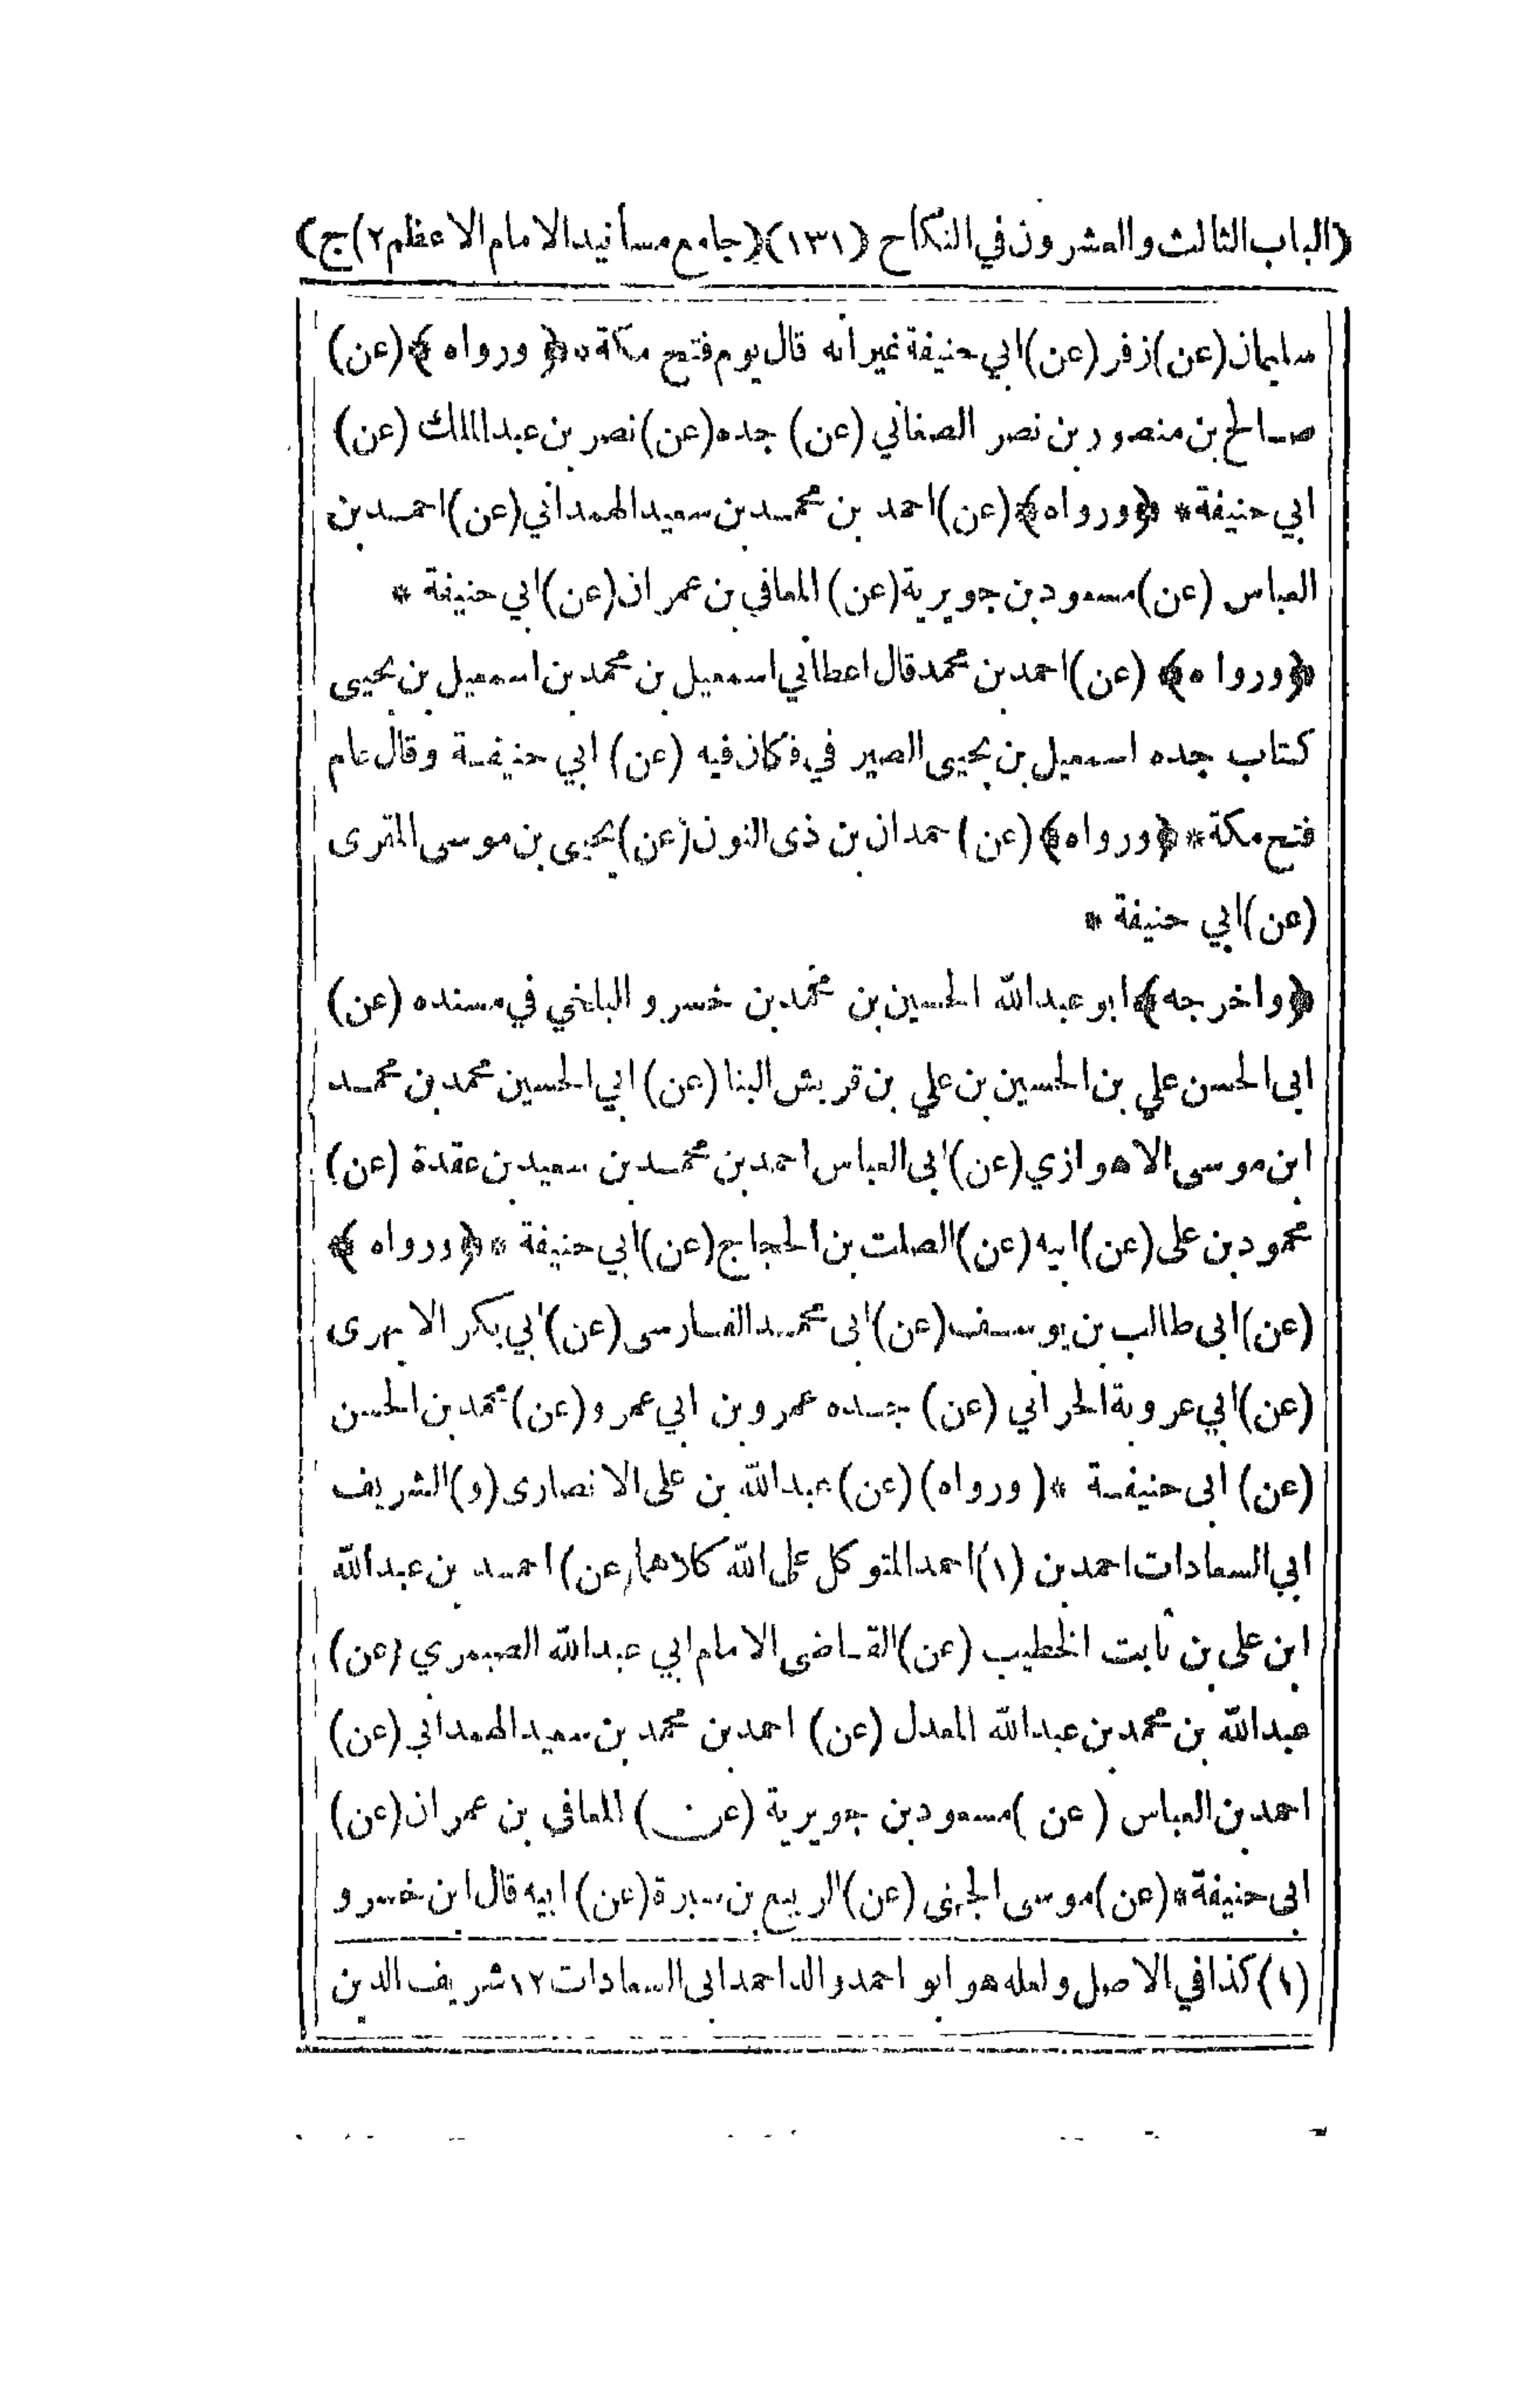 (الباب الثالث والعشرون في النكاح) (١٣١) (جامع مسانيد الامام الاعظم ٢) ج)
سليمان (عن) زفر (عن) ابي حنيفة غير انه قال يوم فتح مكة * ﴿ ورواه ﴾ (عن)
صالح بن منصور بن نصر الصغاني (عن) جده (عن) نصر بن عبدالملك (عن)
ابي حنيفة * ﴿ورواه﴾ (عن) احمد بن محمد بن سعيد الهمداني (عن) احمد بن
العباس (عن) مسعود بن جويرية (عن) المعافي بن عمران (عن) ابي حنيفة *
﴿ورواه﴾ (عن) احمد بن محمد قال اعطاني اسمعيل بن محمد بن اسمعيل بن يحيى
كتاب جده اسمعيل بن يحيى الصيرفي فكان فيه (عن) ابي حنيفة وقال عام
فتح مكة * ﴿ورواه﴾ (عن) حمدان بن ذى النون (عن) يحيى بن موسى المقرى
(عن) ابي حنيفة *
﴿واخرجه﴾ ابو عبدالله الحسين بن محمد بن خسرو البلخي في مسنده (عن)
ابى الحسن علي بن الحسين بن علي بن قريش البنا (عن) ابي الحسين محمد بن محمد
ابن موسى الاهوازي (عن) ابى العباس احمد بن محمد بن سعيد بن عقدة (عن)
محمود بن على (عن) ابيه (عن) الصلت بن الحجاج (عن) ابي حنيفة * ﴿ورواه ﴾
(عن) ابى طالب بن يوسف (عن) ابى محمد الفارسى (عن) ابي بكر الابهرى
(عن) ابي عروبة الحراني (عن) جده عمرو بن ابي عمرو (عن) محمد بن الحسن
(عن) ابى حنيفة * (ورواه) (عن) عبدالله بن على الانصارى (و) الشريف
ابي السعادات احمد بن (١) احمد المتوكل على الله كلاهما (عن) احمد بن عبدالله
ابن على بن ثابت الخطيب (عن) القاضى الامام ابي عبدالله الصيمري (عن)
عبدالله بن محمد بن عبدالله المعدل (عن) احمد بن محمد بن سعيد الهمداني (عن)
احمد بن العباس (عن) مسعود بن جويرية (عن) المعافى بن عمران (عن)
ابى حنيفة * (عن) موسى الجهنى (عن) الربيع بن سبرة (عن) ابيه قال ابن خسرو
(١) كذا في الاصل ولعله هو ابو احمد والد احمد ابى السعادات ١٢ شريف الدين